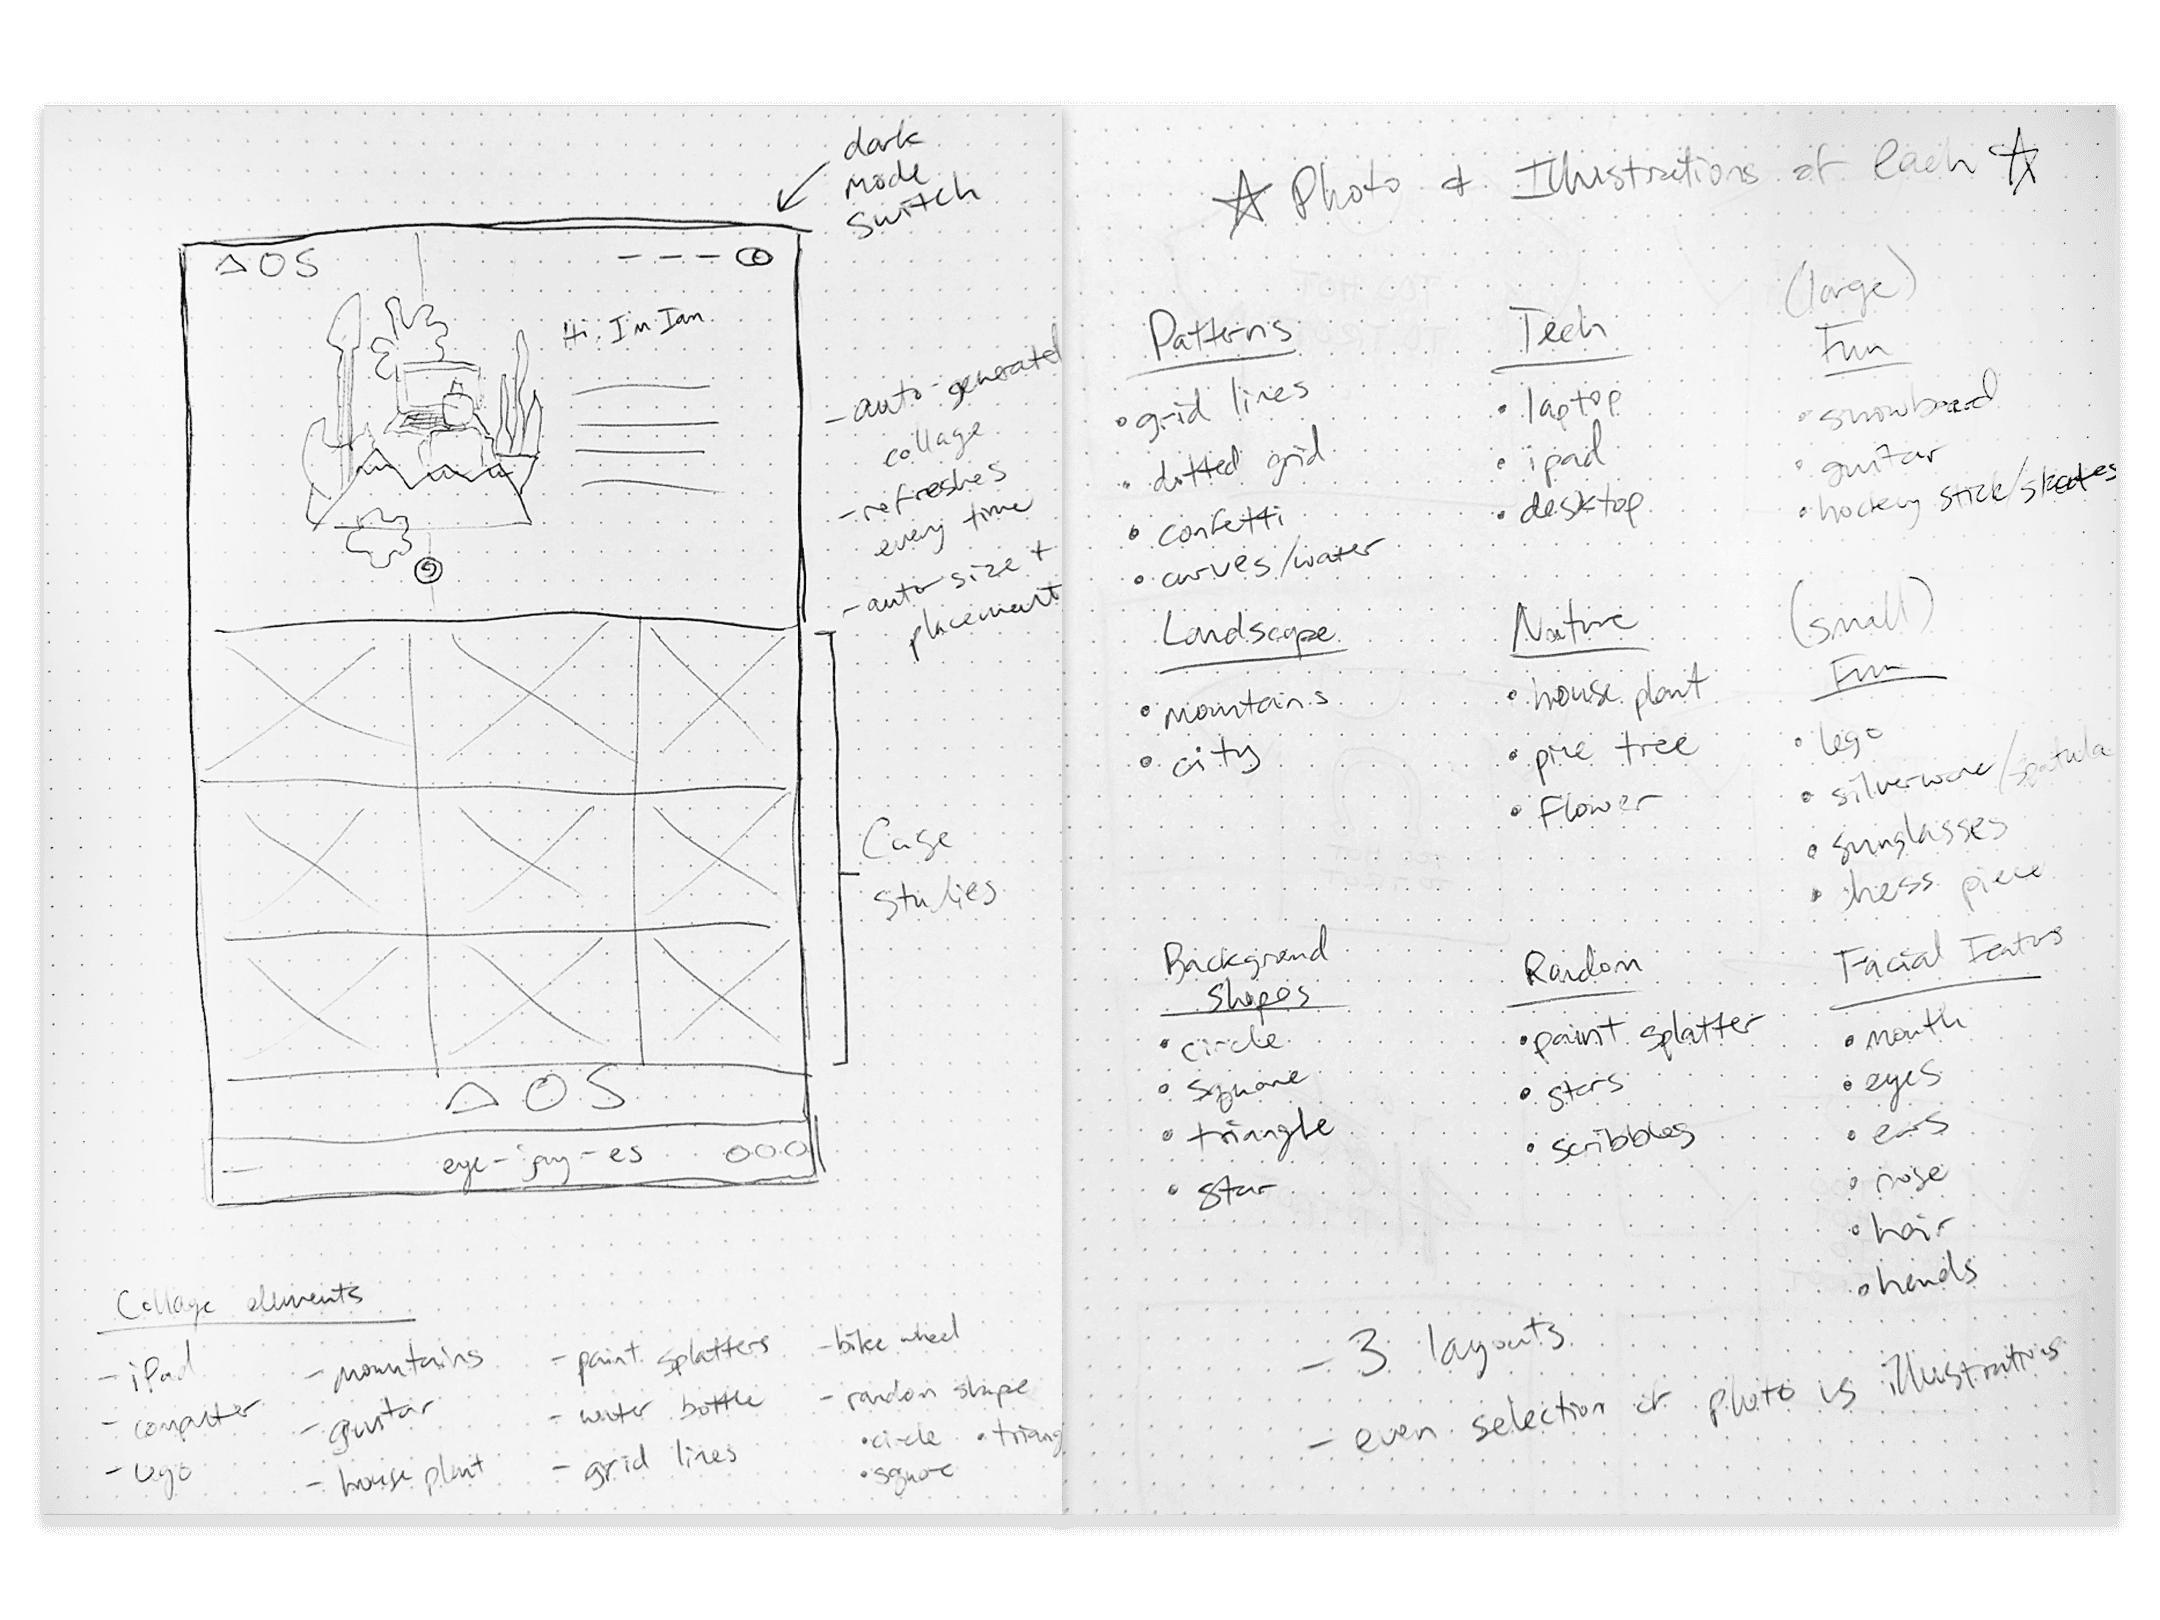 dark
mode
switch
△OS
Hi, I'm Ian
- auto-generated
collage
- refreshes
every time
- auto size +
placement
Case
studies
△OS
eye-jay-es
Collage elements
- iPad
- computer
- Lego
- mountains
- guitar
- house plant
- paint splatters
- water bottle
- grid lines
- bike wheel
- random shape
• circle • triang
• square
☆ Photo & Illustrations of Each ☆
Patterns
• grid lines
• dotted grid
• confetti
• curves/water
Tech
• laptop
• ipad
• desktop
(large)
Fun
• snowboard
• guitar
• hockey stick/skates
Landscape
• mountains
• city
Nature
• house plant
• pine tree
• flower
(small)
Fun
• lego
• silverware/spatula
• sunglasses
• chess piece
Background
Shapes
• circle
• square
• triangle
• star
Random
• paint splatter
• stars
• scribbles
Facial Features
• mouth
• eyes
• ears
• nose
• hair
• hands
- 3 layouts
- even selection of photo vs illustrations